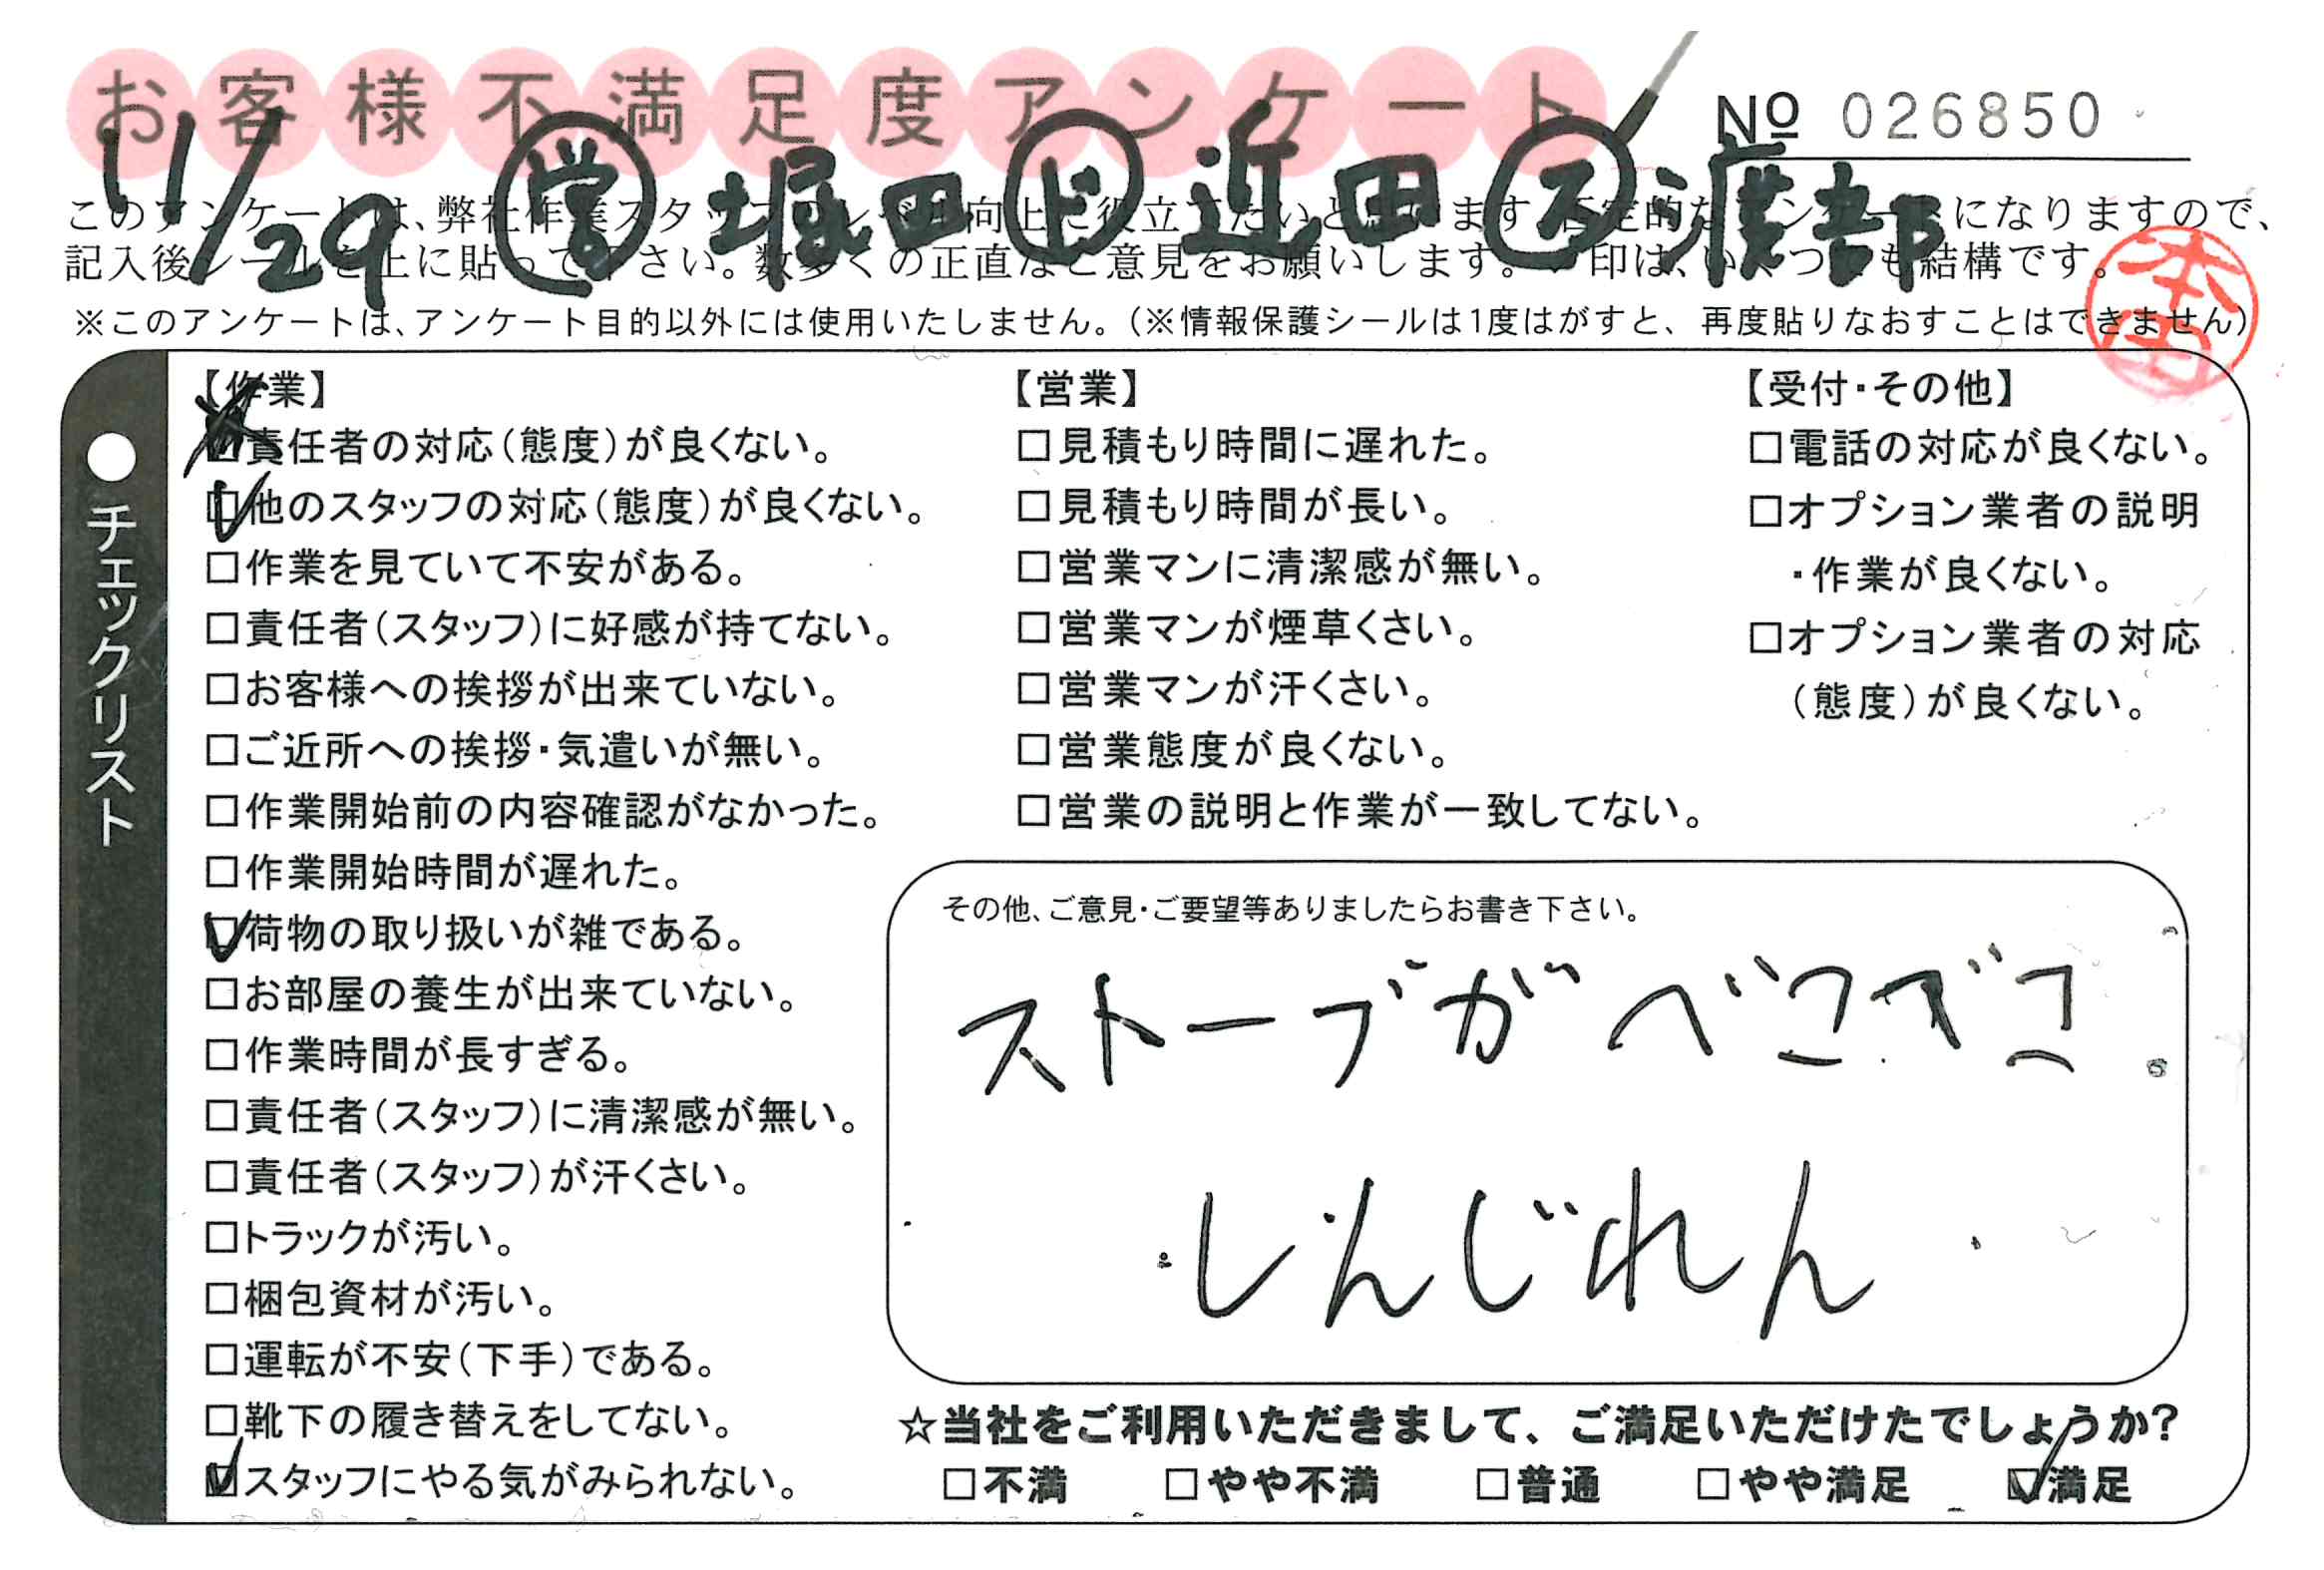 お客様不満足度アンケート
№ 026850
11/29 営 堀田 上 近田 ス 渡部
このアンケートは、弊社作業スタッフのレベル向上に役立てたいと思います。否定的なアンケートになりますので、
記入後シールを上に貼って下さい。数多くの正直なご意見をお願いします。✓印は、いくつでも結構です。
※このアンケートは、アンケート目的以外には使用いたしません。(※情報保護シールは1度はがすと、再度貼りなおすことはできません)
●チェックリスト
【作業】
□責任者の対応(態度)が良くない。
☑他のスタッフの対応(態度)が良くない。
□作業を見ていて不安がある。
□責任者(スタッフ)に好感が持てない。
□お客様への挨拶が出来ていない。
□ご近所への挨拶・気遣いが無い。
□作業開始前の内容確認がなかった。
□作業開始時間が遅れた。
☑荷物の取り扱いが雑である。
□お部屋の養生が出来ていない。
□作業時間が長すぎる。
□責任者(スタッフ)に清潔感が無い。
□責任者(スタッフ)が汗くさい。
□トラックが汚い。
□梱包資材が汚い。
□運転が不安(下手)である。
□靴下の履き替えをしてない。
☑スタッフにやる気がみられない。
【営業】
□見積もり時間に遅れた。
□見積もり時間が長い。
□営業マンに清潔感が無い。
□営業マンが煙草くさい。
□営業マンが汗くさい。
□営業態度が良くない。
□営業の説明と作業が一致してない。
【受付・その他】
□電話の対応が良くない。
□オプション業者の説明
・作業が良くない。
□オプション業者の対応
(態度)が良くない。
その他、ご意見・ご要望等ありましたらお書き下さい。
ストーブがべこでこ
しんじれん
☆当社をご利用いただきまして、ご満足いただけたでしょうか?
□不満 □やや不満 □普通 □やや満足 ☑満足